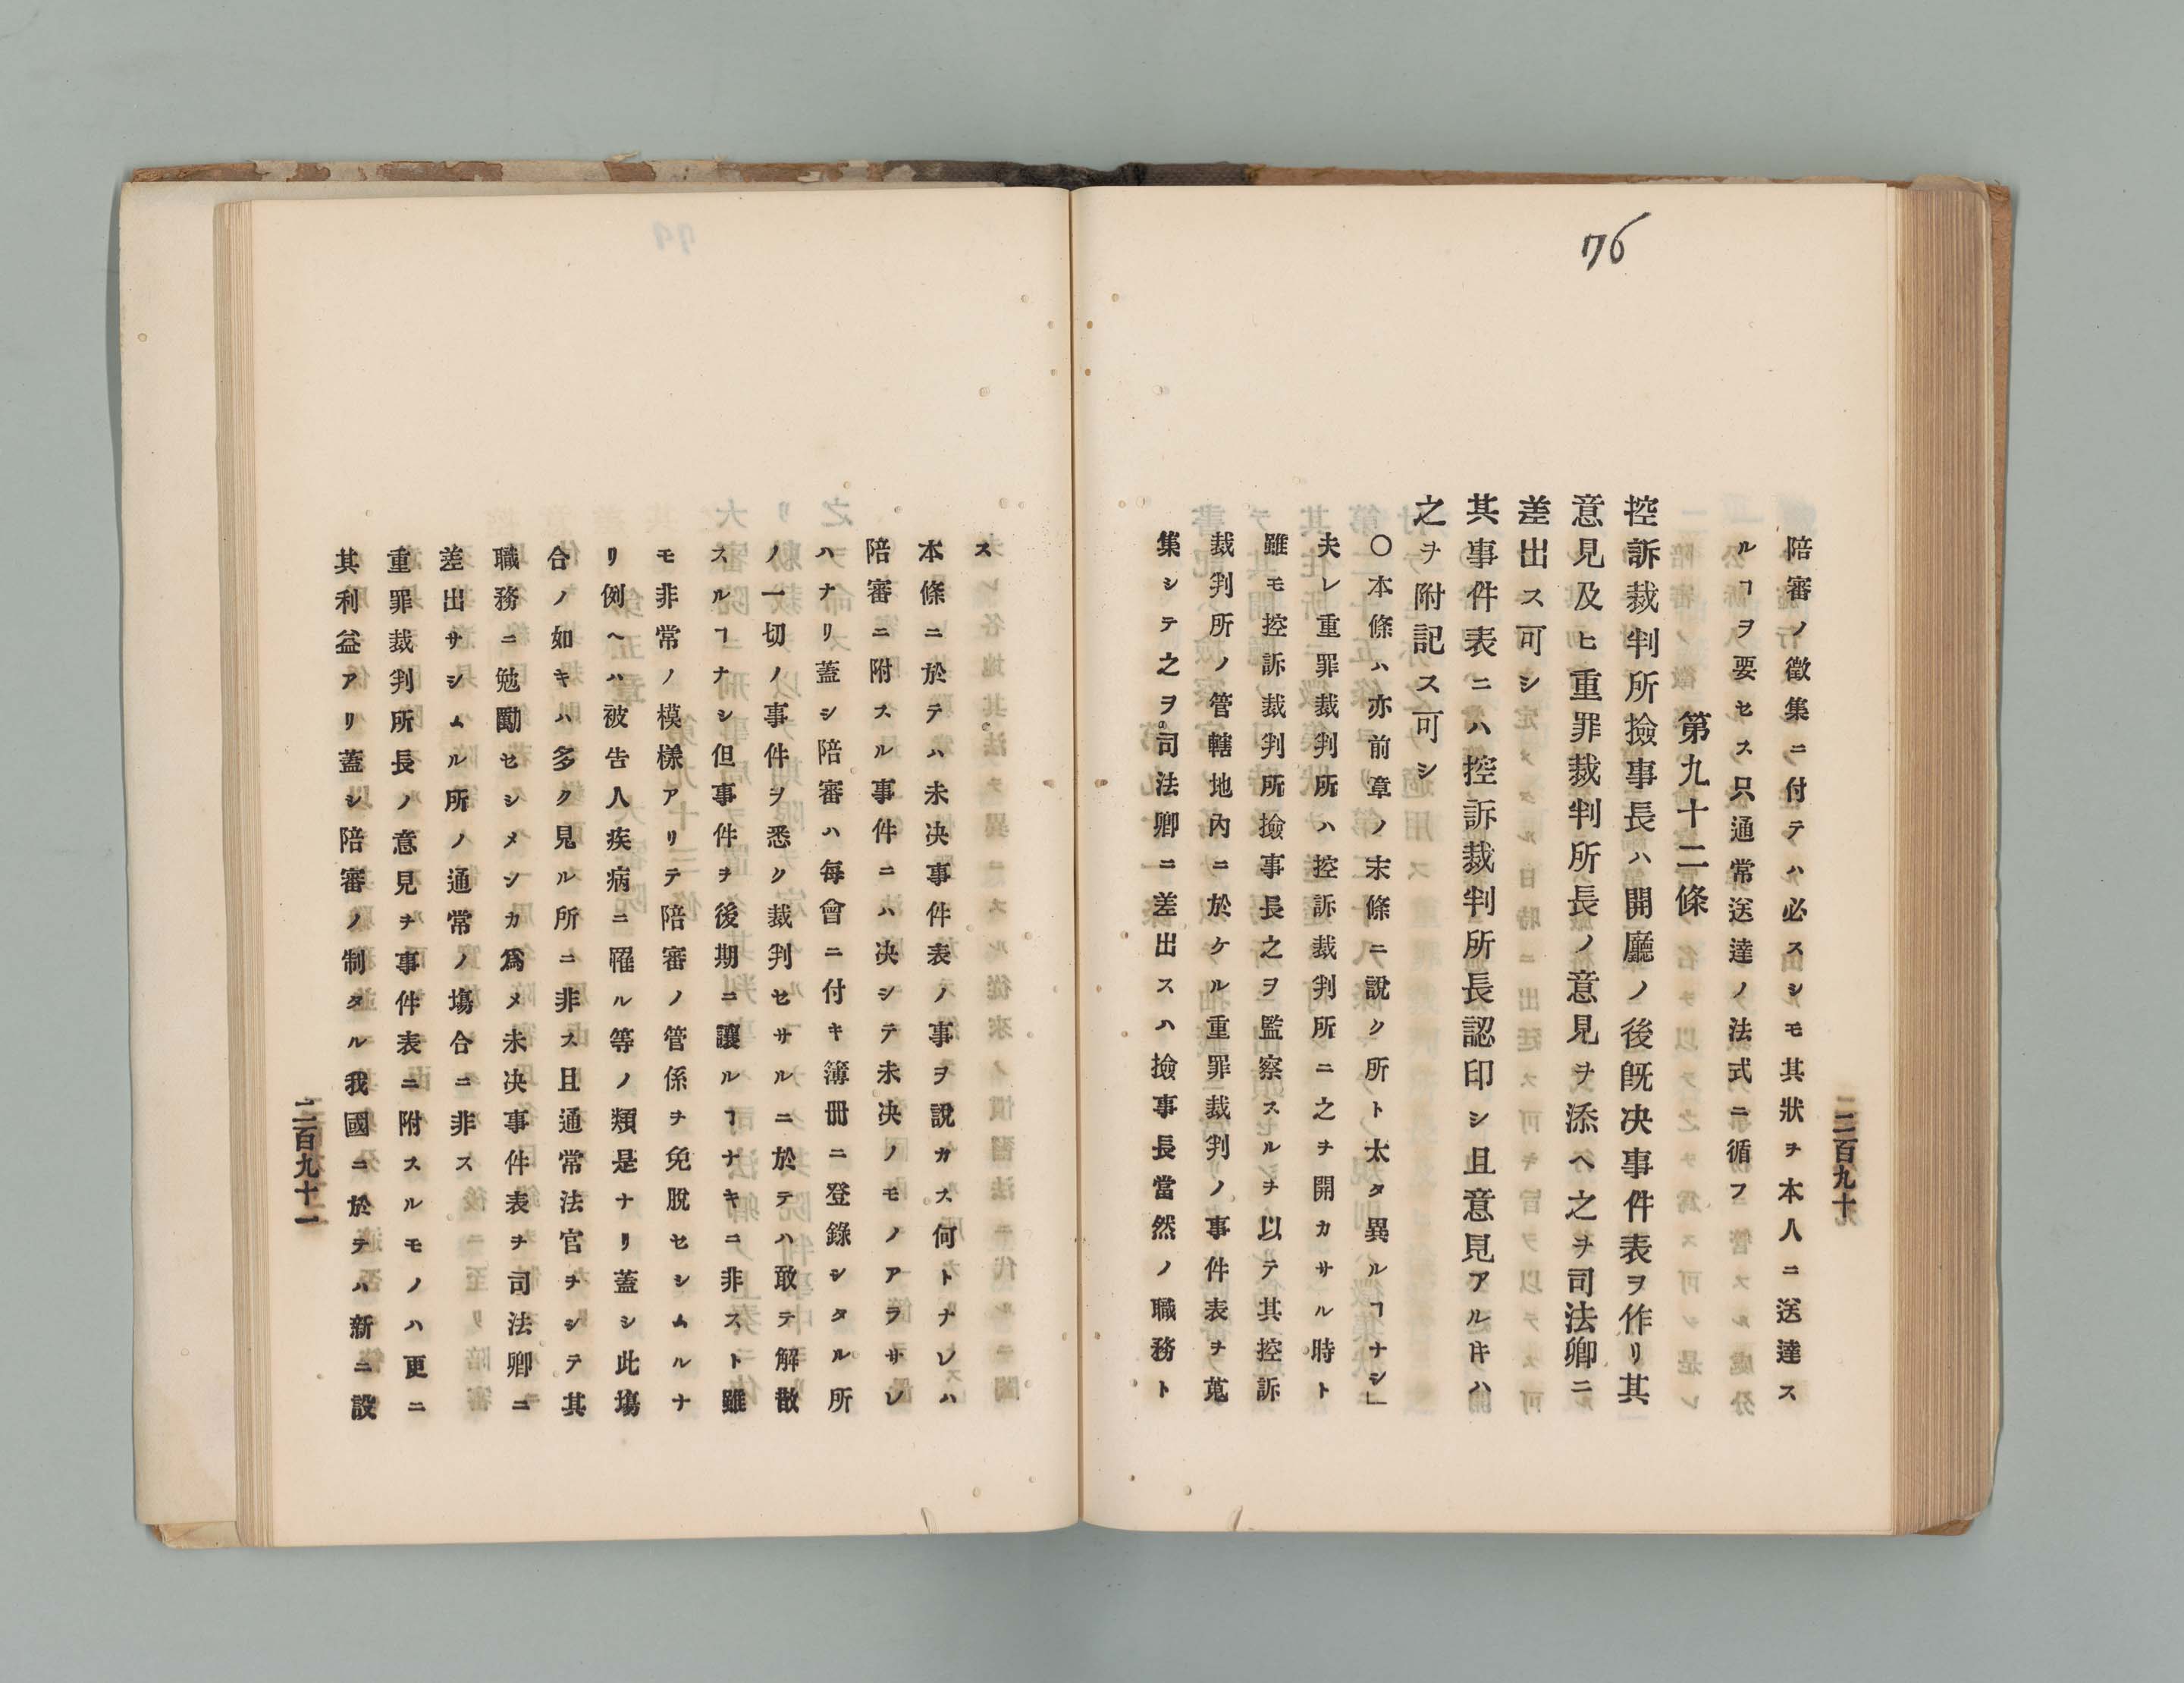 76
二百九十
陪審ノ徵集ニ付テハ必スシモ其狀ヲ本人ニ送達ス
ルヿヲ要セス只通常送達ノ法式ニ循フ
第九十二條
控訴裁判所撿事長ハ開廳ノ後既决事件表ヲ作リ其
意見及ヒ重罪裁判所長ノ意見ヲ添ヘ之ヲ司法卿ニ
差出ス可シ
其事件表ニハ控訴裁判所長認印シ且意見アルキハ
之ヲ附記ス可シ
〇本條ハ亦前章ノ末條ニ說ク所ト太タ異ルヿナシ」
夫レ重罪裁判所ハ控訴裁判所ニ之ヲ開カサル時ト
雖モ控訴裁判所撿事長之ヲ監察スルヲ以テ其控訴
裁判所ノ管轄地內ニ於ケル重罪裁判ノ事件表ヲ蒐
集シテ之ヲ司法卿ニ差出スハ撿事長當然ノ職務ト
ス
本條ニ於テハ未决事件表ノ事ヲ說カス何トナレハ
陪審ニ附スル事件ニハ决シテ未决ノモノアラサレ
ハナリ蓋シ陪審ハ每會ニ付キ簿册ニ登錄シタル所
ノ一切ノ事件ヲ悉ク裁判セサルニ於テハ敢テ解散
スルヿナシ但事件ヲ後期ニ讓ルヿナキニ非スト雖
モ非常ノ模樣アリテ陪審ノ管係ヲ免脫セシムルナ
リ例ヘハ被告人疾病ニ罹ル等ノ類是ナリ蓋シ此塲
合ノ如キハ多ク見ル所ニ非ス且通常法官ヲシテ其
職務ニ勉勵セシメンカ爲メ未决事件表ヲ司法卿ニ
差出サシムル所ノ通常ノ塲合ニ非ス
重罪裁判所長ノ意見ヲ事件表ニ附スルモノハ更ニ
其利益アリ蓋シ陪審ノ制タル我國ニ於テハ新ニ設
二百九十一